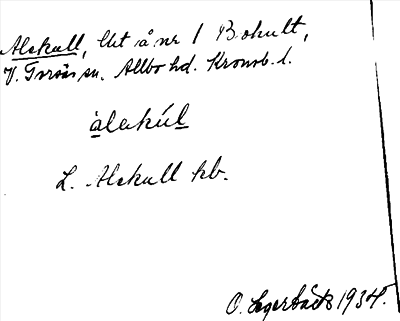 Alskull, lht å nr 1 Bokult,
V. Torsås sn. Allbo hd. Kronob. l.
àlakúl
L. Alskull hb.
O. Lagerbäck 1934.